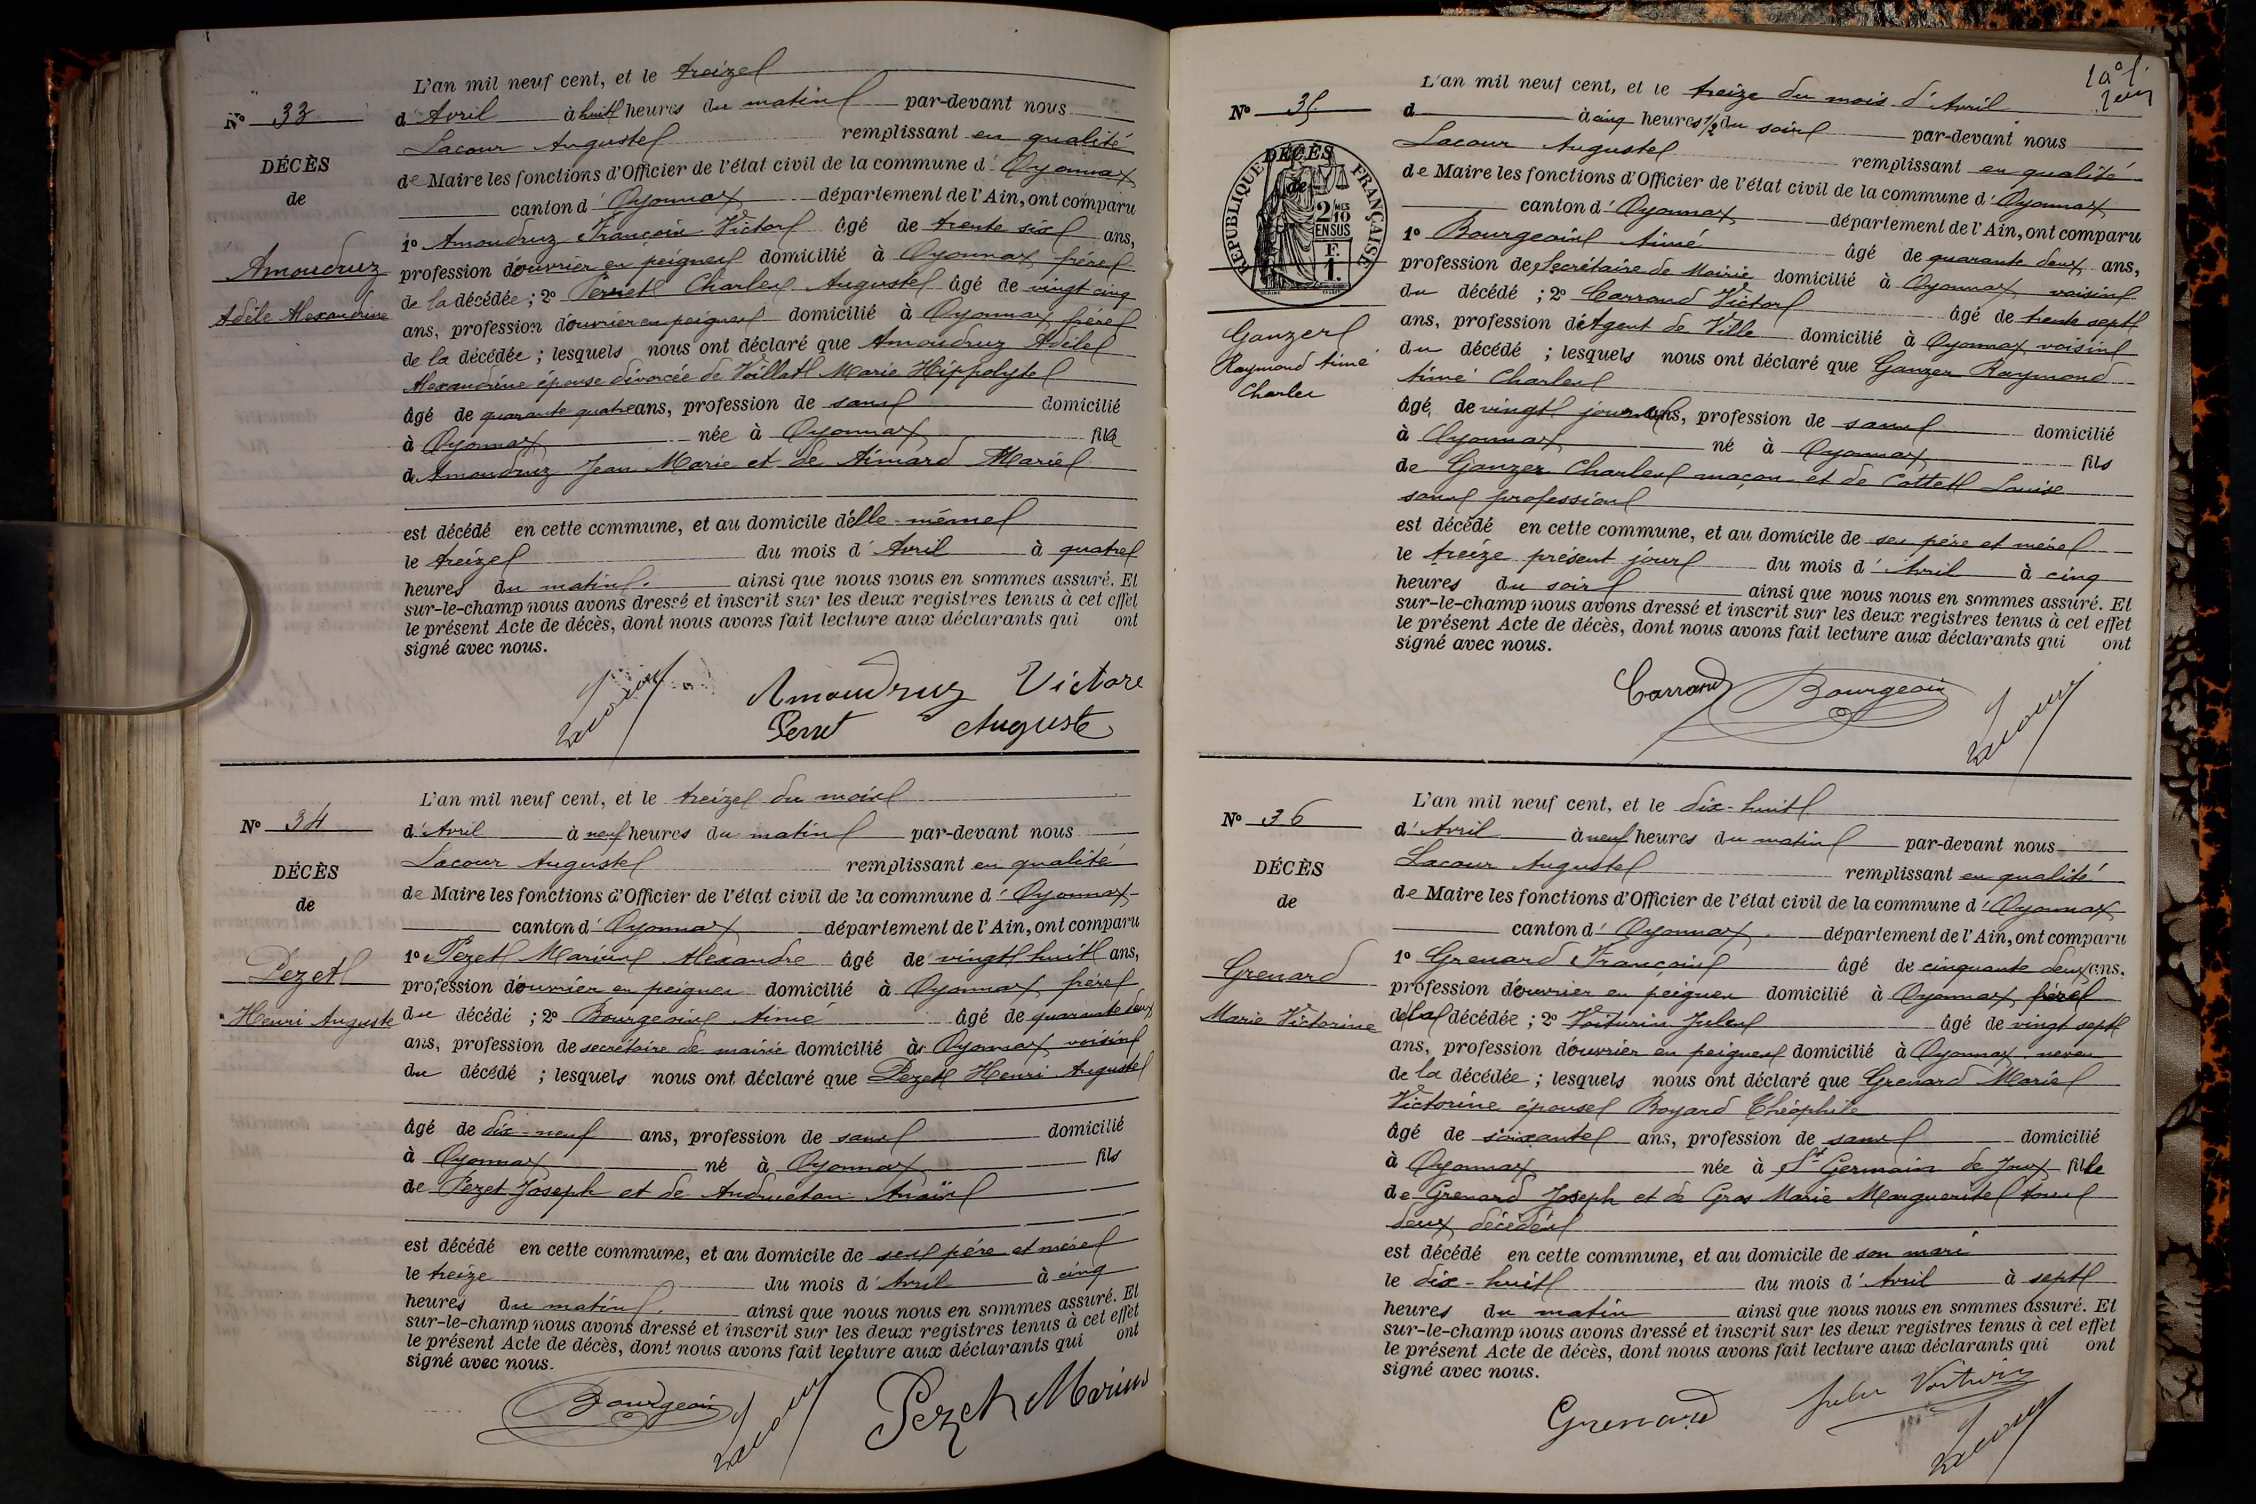 L'an mil neuf cent, et le treize
N° 33
d'Avril à huit heures du matin par-devant nous
Lacour Auguste remplissant en qualité
DÉCÈS
de Maire les fonctions d'Officier de l'état civil de la commune d'Oyonnax
de
canton d'Oyonnax département de l'Ain, ont comparu
1° Amoudruz François Victor âgé de trente six ans,
Amoudruz
profession d'ouvrier en peignes domicilié à Oyonnax frère
Adèle Alexandrine
de la décédée ; 2° Perret Charles Auguste âgé de vingt cinq
ans, profession d'ouvrier en peignes domicilié à Oyonnax frère
de la décédée ; lesquels nous ont déclaré que Amoudruz Adèle
Alexandrine épouse divorcée de Voillat Marie Hippolyte
âgé de quarante quatre ans, profession de sans domicilié
à Oyonnax née à Oyonnax fille
d'Amoudruz Jean Marie et de Aimard Marie
est décédé en cette commune, et au domicile d'elle-même
le treize du mois d'Avril à quatre
heures du matin. ainsi que nous nous en sommes assuré. Et
sur-le-champ nous avons dressé et inscrit sur les deux registres tenus à cet effet
le présent Acte de décès, dont nous avons fait lecture aux déclarants qui ont
signé avec nous.
Lacour Amoudruz Victore
Perret Auguste
L'an mil neuf cent, et le treize du mois
N° 34
d'Avril à neuf heures du matin par-devant nous
Lacour Auguste remplissant en qualité
DÉCÈS
de Maire les fonctions d'Officier de l'état civil de la commune d'Oyonnax
de
canton d'Oyonnax département de l'Ain, ont comparu
1° Pezet Marius Alexandre âgé de vingt huit ans,
Pezet
profession d'ouvrier en peignes domicilié à Oyonnax frère
Henri Auguste
du décédé ; 2° Bourgeois Aimé âgé de quarante deux
ans, profession de secrétaire de mairie domicilié à Oyonnax voisin
du décédé ; lesquels nous ont déclaré que Pezet Henri Auguste
âgé de dix-neuf ans, profession de sans domicilié
à Oyonnax né à Oyonnax fils
de Pezet Joseph et de Andruetan Anaïs
est décédé en cette commune, et au domicile de ses père et mère
le treize du mois d'Avril à cinq
heures du matin. ainsi que nous nous en sommes assuré. Et
sur-le-champ nous avons dressé et inscrit sur les deux registres tenus à cet effet
le présent Acte de décès, dont nous avons fait lecture aux déclarants qui ont
signé avec nous.
Bourgeois Lacour Pezet Marius
L'an mil neuf cent, et le treize du mois d'Avril
N° 35
d à cinq heures 1/2 du soir par-devant nous
Lacour Auguste remplissant en qualité
DÉCÈS
de Maire les fonctions d'Officier de l'état civil de la commune d'Oyonnax
de
RÉPUBLIQUE FRANÇAISE
2 MES
10
EN SUS
F.
1.
canton d'Oyonnax département de l'Ain, ont comparu
1° Bourgeois Aimé âgé de quarante deux ans,
profession de Secrétaire de Mairie domicilié à Oyonnax voisin
du décédé ; 2° Carrand Victor âgé de trente sept
Ganzer
ans, profession d'Agent de Ville domicilié à Oyonnax voisin
Raymond Aimé
Charles
du décédé ; lesquels nous ont déclaré que Ganzer Raymond
Aimé Charles
âgé de vingt jours ans, profession de sans domicilié
à Oyonnax né à Oyonnax fils
de Ganzer Charles maçon et de Cottet Louise
sans profession
est décédé en cette commune, et au domicile de ses père et mère
le treize présent jour du mois d'Avril à cinq
heures du soir ainsi que nous nous en sommes assuré. Et
sur-le-champ nous avons dressé et inscrit sur les deux registres tenus à cet effet
le présent Acte de décès, dont nous avons fait lecture aux déclarants qui ont
signé avec nous.
Carrand Bourgeois Lacour
L'an mil neuf cent, et le dix-huit
N° 36
d'Avril à neuf heures du matin par-devant nous
Lacour Auguste remplissant en qualité
DÉCÈS
de Maire les fonctions d'Officier de l'état civil de la commune d'Oyonnax
de
canton d'Oyonnax département de l'Ain, ont comparu
1° Grenard François âgé de cinquante deux ans,
Grenard
profession d'ouvrier en peignes domicilié à Oyonnax frère
Marie Victorine
de la décédée ; 2° Voiturin Jules âgé de vingt sept
ans, profession d'ouvrier en peignes domicilié à Oyonnax neveu
de la décédée ; lesquels nous ont déclaré que Grenard Marie
Victorine épouse Boyard Théophile
âgé de soixante ans, profession de sans domicilié
à Oyonnax née à St Germain de Joux fille
de Grenard Joseph et de Gras Marie Marguerite tous
deux décédés
est décédé en cette commune, et au domicile de son mari
le dix-huit du mois d'Avril à sept
heures du matin ainsi que nous nous en sommes assuré. Et
sur-le-champ nous avons dressé et inscrit sur les deux registres tenus à cet effet
le présent Acte de décès, dont nous avons fait lecture aux déclarants qui ont
signé avec nous.
Grenard Jules Voiturin Lacour